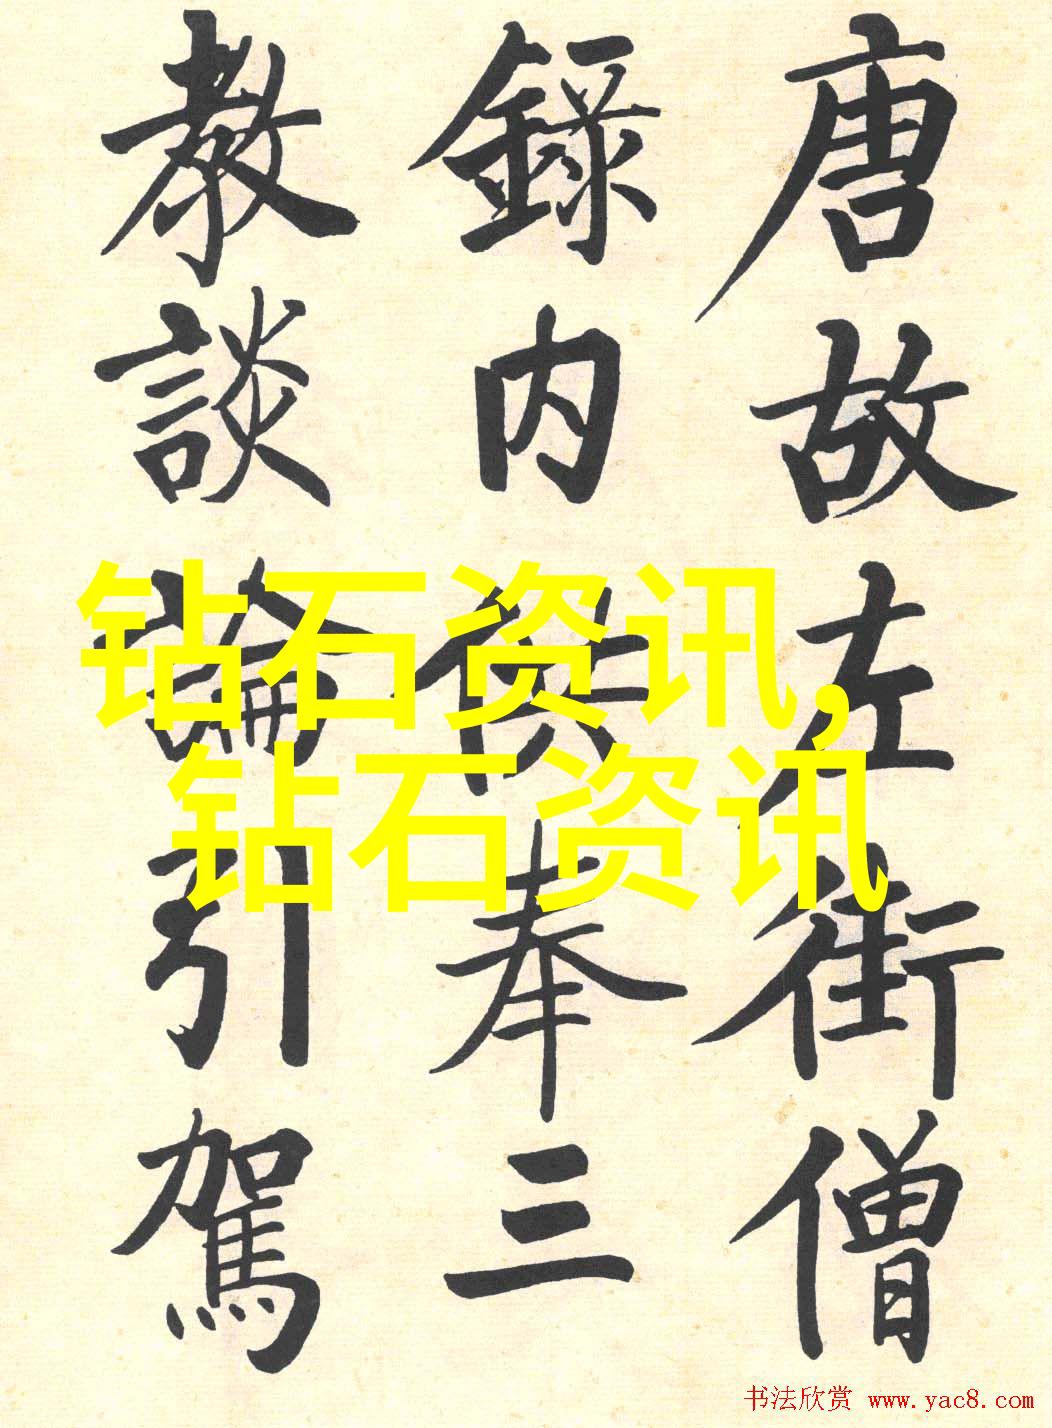 唐故左街僧
錄内供奉三
教談論引駕
钻石资讯,
钻石资讯
书法欣赏 www.yac8.com